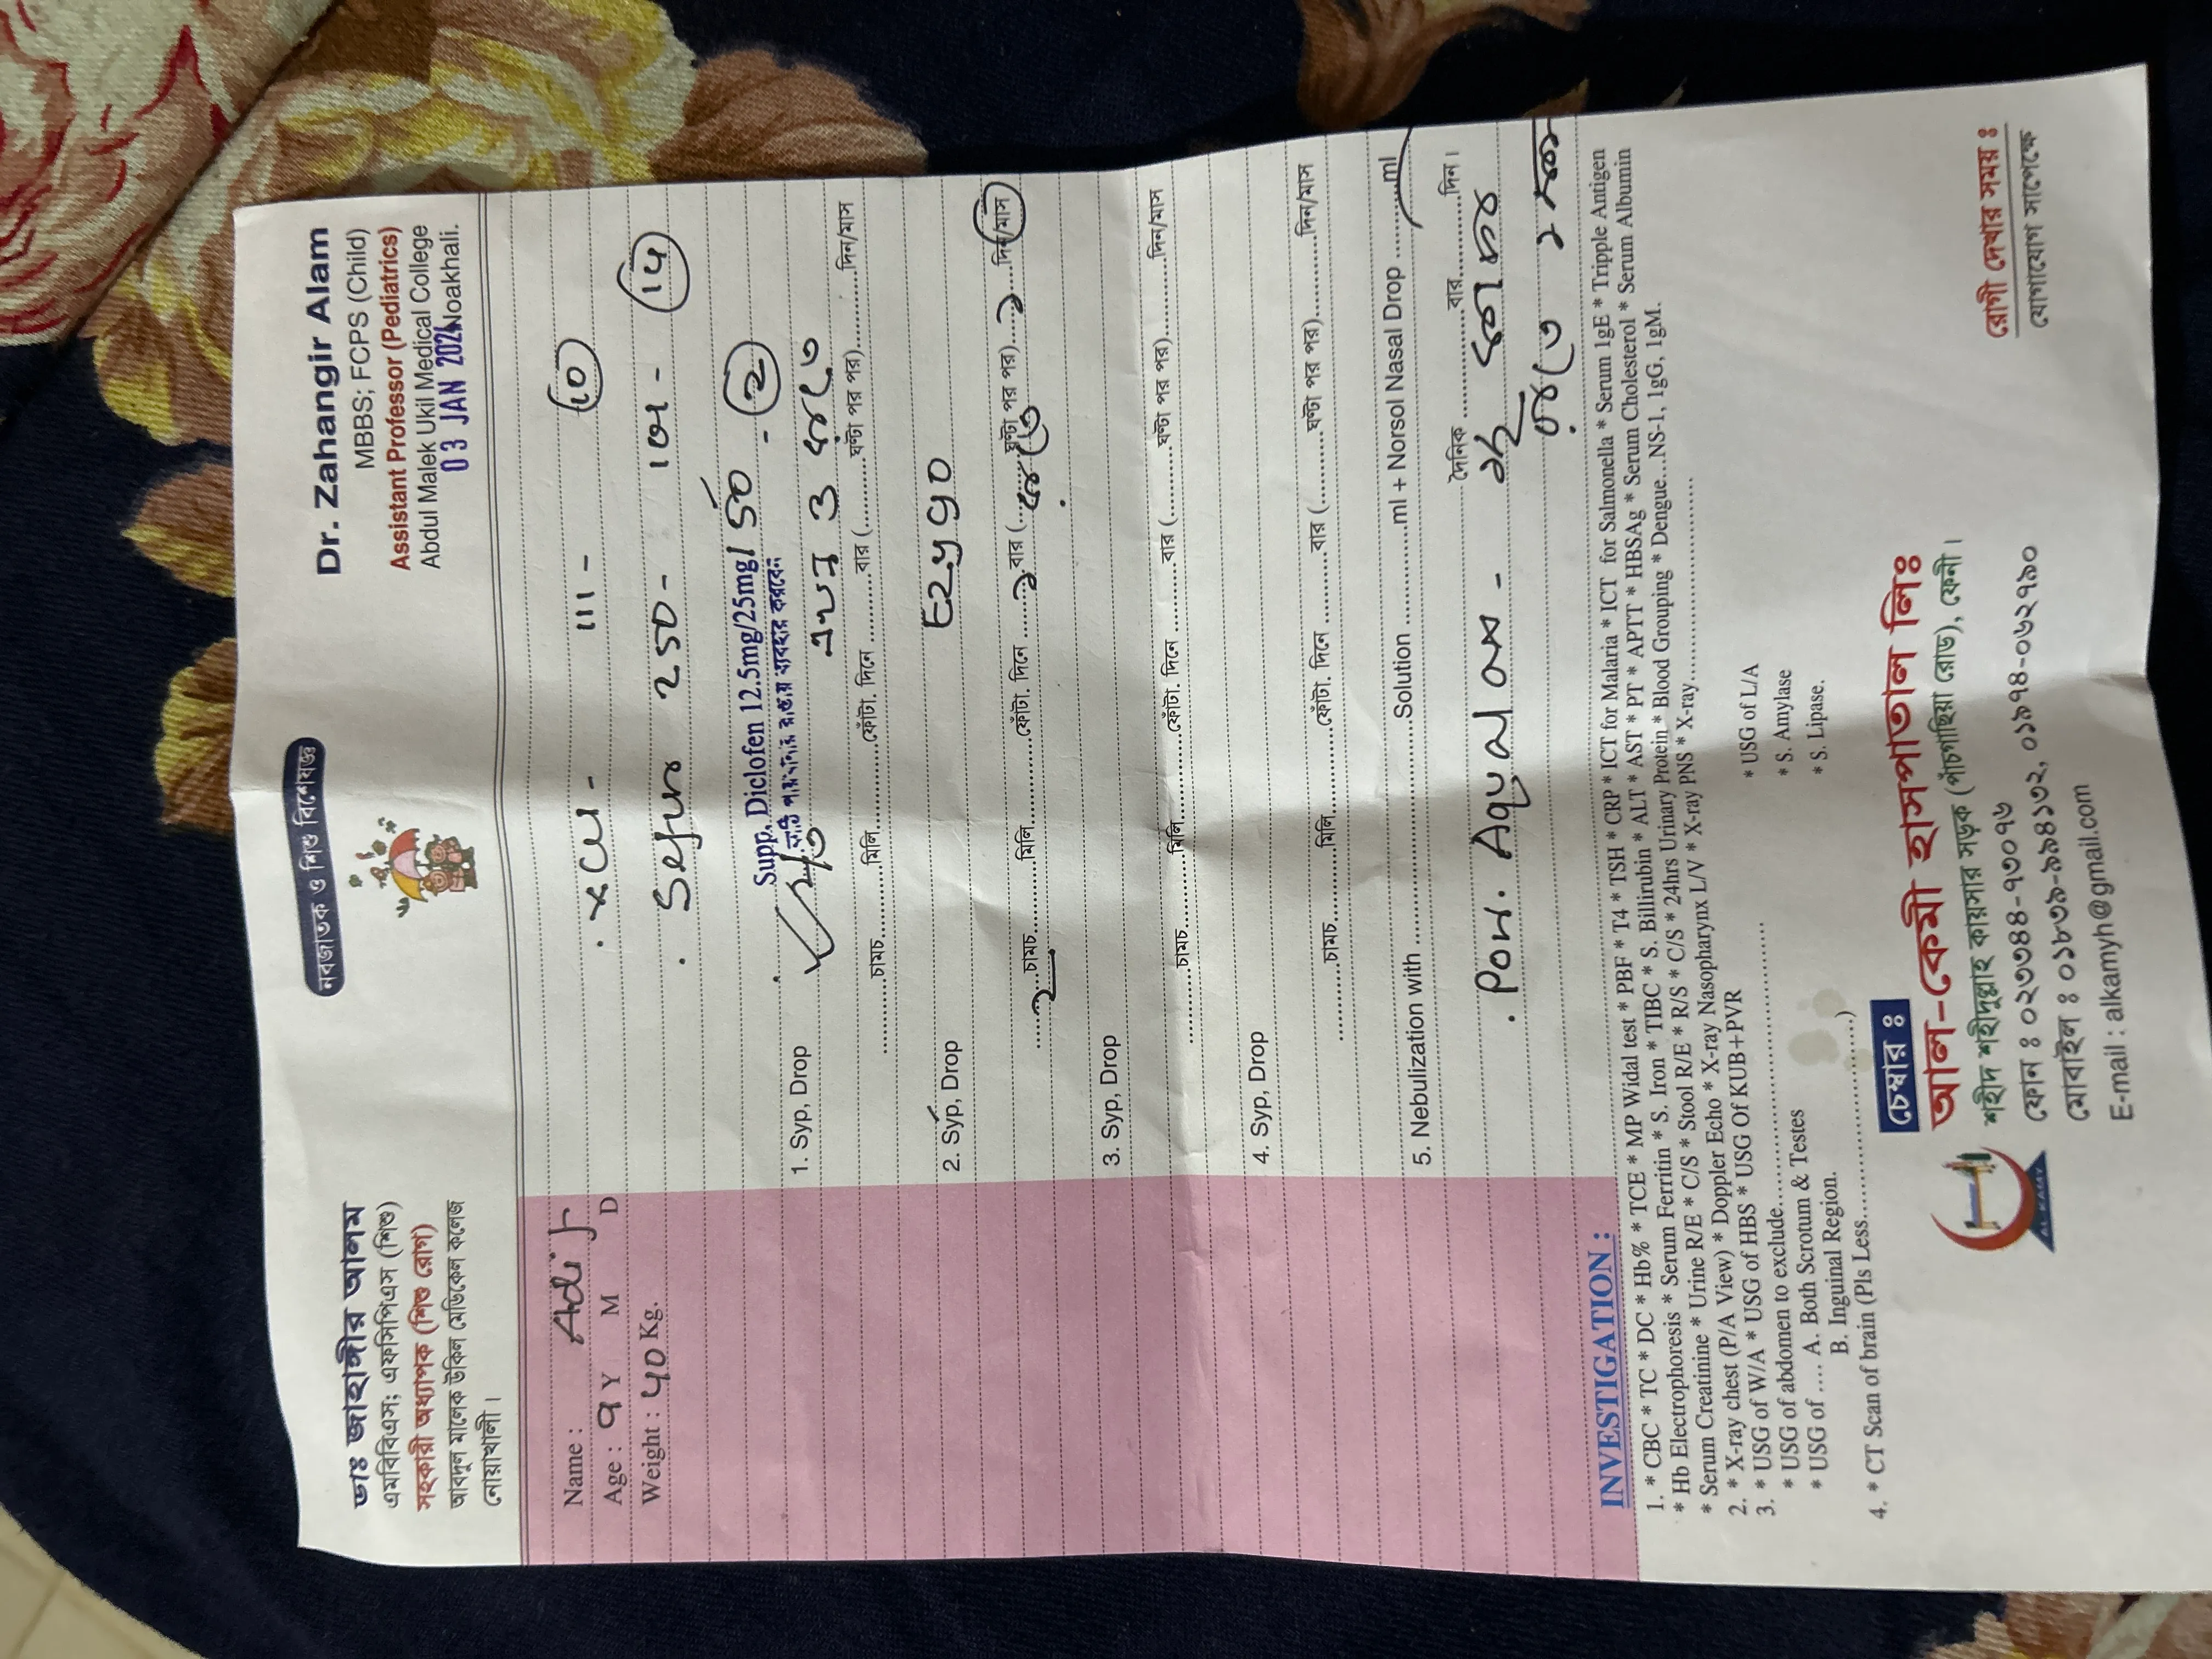 ডাঃ জাহাঙ্গীর আলম
এমবিবিএস; এফসিপিএস (শিশু)
সহকারী অধ্যাপক (শিশু রোগ)
আবদুল মালেক উকিল মেডিকেল কলেজ
নোয়াখালী।
নবজাতক ও শিশু বিশেষজ্ঞ
Dr. Zahangir Alam
MBBS; FCPS (Child)
Assistant Professor (Pediatrics)
Abdul Malek Ukil Medical College
03 JAN 202 Noakhali.
Name :
Age : 9 Y M D
Weight : 40 Kg.
111 - 10
250 - 14
Supp. Diclofen 12.5mg/25mg/50 - 2
পায়খানার রাস্তায় ব্যবহার করবেন
1. Syp, Drop
..........চামচ..........মিলি..........ফোঁটা. দিনে ..........বার (..........ঘন্টা পর পর)..........দিন/মাস
2. Syp, Drop
....২...চামচ..........মিলি..........ফোঁটা. দিনে .....২.বার (..........ঘন্টা পর পর)....১...দিন/মাস
3. Syp, Drop
..........চামচ..........মিলি..........ফোঁটা. দিনে ..........বার (..........ঘন্টা পর পর)..........দিন/মাস
4. Syp, Drop
..........চামচ..........মিলি..........ফোঁটা. দিনে ..........বার (..........ঘন্টা পর পর)..........দিন/মাস
5. Nebulization with ....................Solution ..........ml + Norsol Nasal Drop ..........ml
দৈনিক ..........বার..........দিন।
INVESTIGATION :
1. * CBC * TC * DC * Hb% * TCE * MP Widal test * PBF * T4 * TSH * CRP * ICT for Malaria * ICT for Salmonella * Serum 1gE * Tripple Antigen
* Hb Electrophoresis * Serum Ferritin * S. Iron * TIBC * S. Billirubin * ALT * AST * PT * APTT * HBSAg * Serum Cholesterol * Serum Albumin
* Serum Creatinine * Urine R/E * C/S * Stool R/E * R/S * C/S * 24hrs Urinary Protein * Blood Grouping * Dengue...NS-1, 1gG, 1gM.
2. * X-ray chest (P/A View) * Doppler Echo * X-ray Nasopharynx L/V * X-ray PNS * X-ray..........
3. * USG of W/A * USG of HBS * USG Of KUB+PVR
* USG of L/A
* USG of abdomen to exclude..........
* S. Amylase
* USG of .... A. Both Scrotum & Testes
* S. Lipase.
B. Inguinal Region.
4. * CT Scan of brain (Pls Less..........)
চেম্বার ঃ
AL-KAMY
আল-কেমী হাসপাতাল লিঃ
শহীদ শহীদুল্লাহ কায়সার সড়ক (পাঁচগাছিয়া রোড), ফেনী।
ফোন ঃ ০২৩৩৪৪-৭৩০৭৬
মোবাইল ঃ ০১৮৩৯-৯৯৪১৩২, ০১৯৭৪-০৬২৭৯০
E-mail : alkamyh@gmail.com
রোগী দেখার সময় ঃ
যোগাযোগ সাপেক্ষে